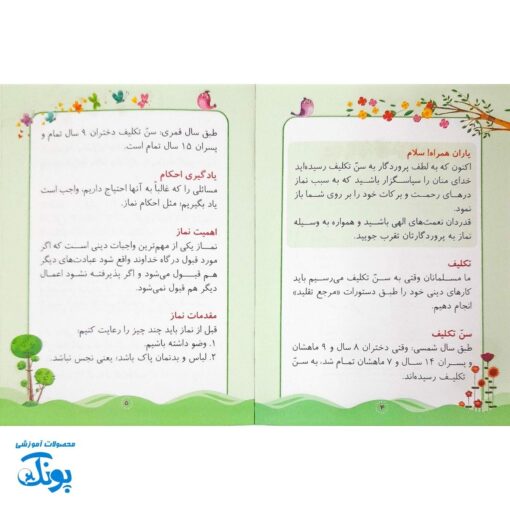 یاران همراه! سلام
اکنون که به لطف پروردگار به سنّ تکلیف رسیده‌اید
خدای منان را سپاسگزار باشید که به سبب نماز
درهای رحمت و برکات خود را بر روی شما باز
نمود.
قدردان نعمت‌های الهی باشید و همواره به وسیله
نماز به پروردگارتان تقرب جویید.
تکلیف
ما مسلمانان وقتی به سنّ تکلیف می‌رسیم باید
کارهای دینی خود را طبق دستورات «مرجع تقلید»
انجام دهیم.
سنّ تکلیف
طبق سال شمسی: وقتی دختران ۸ سال و ۹ ماهشان
و پسران ۱۴ سال و ۷ ماهشان تمام شد، به سنّ
تکلیف رسیده‌اند.
۴
طبق سال قمری: سنّ تکلیف دختران ۹ سال تمام و
پسران ۱۵ سال تمام است.
یادگیری احکام
مسائلی را که غالباً به آنها احتیاج داریم، واجب است
یاد بگیریم؛ مثل احکام نماز.
اهمیت نماز
نماز یکی از مهم‌ترین واجبات دینی است که اگر
مورد قبول درگاه خداوند واقع شود عبادت‌های دیگر
هم قبول می‌شود و اگر پذیرفته نشود اعمال
دیگر هم قبول نمی‌شود.
مقدمات نماز
قبل از نماز باید چند چیز را رعایت کنیم:
۱. وضو داشته باشیم.
۲. لباس و بدنمان پاک باشد؛ یعنی نجس نباشد.
۵
محصولات آموزشی
پونک